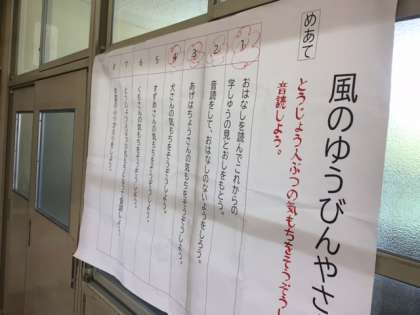 風のゆうびんやさ
めあて
とうじょう人ぶつの気もちをそうぞうし
音読しよう。
1 おはなしを読んでこれからの
学しゅうの見とおしをもとう。
2 音読をして、おはなしのないようをしろう。
3 あげはちょうさんの気もちをそうぞうしよう。
4 犬さんの気もちをそうぞうしよう。
5 すずめさんの気もちをそうぞうしよう。
6 くもさんの気もちをそうぞうしよう。
7
8